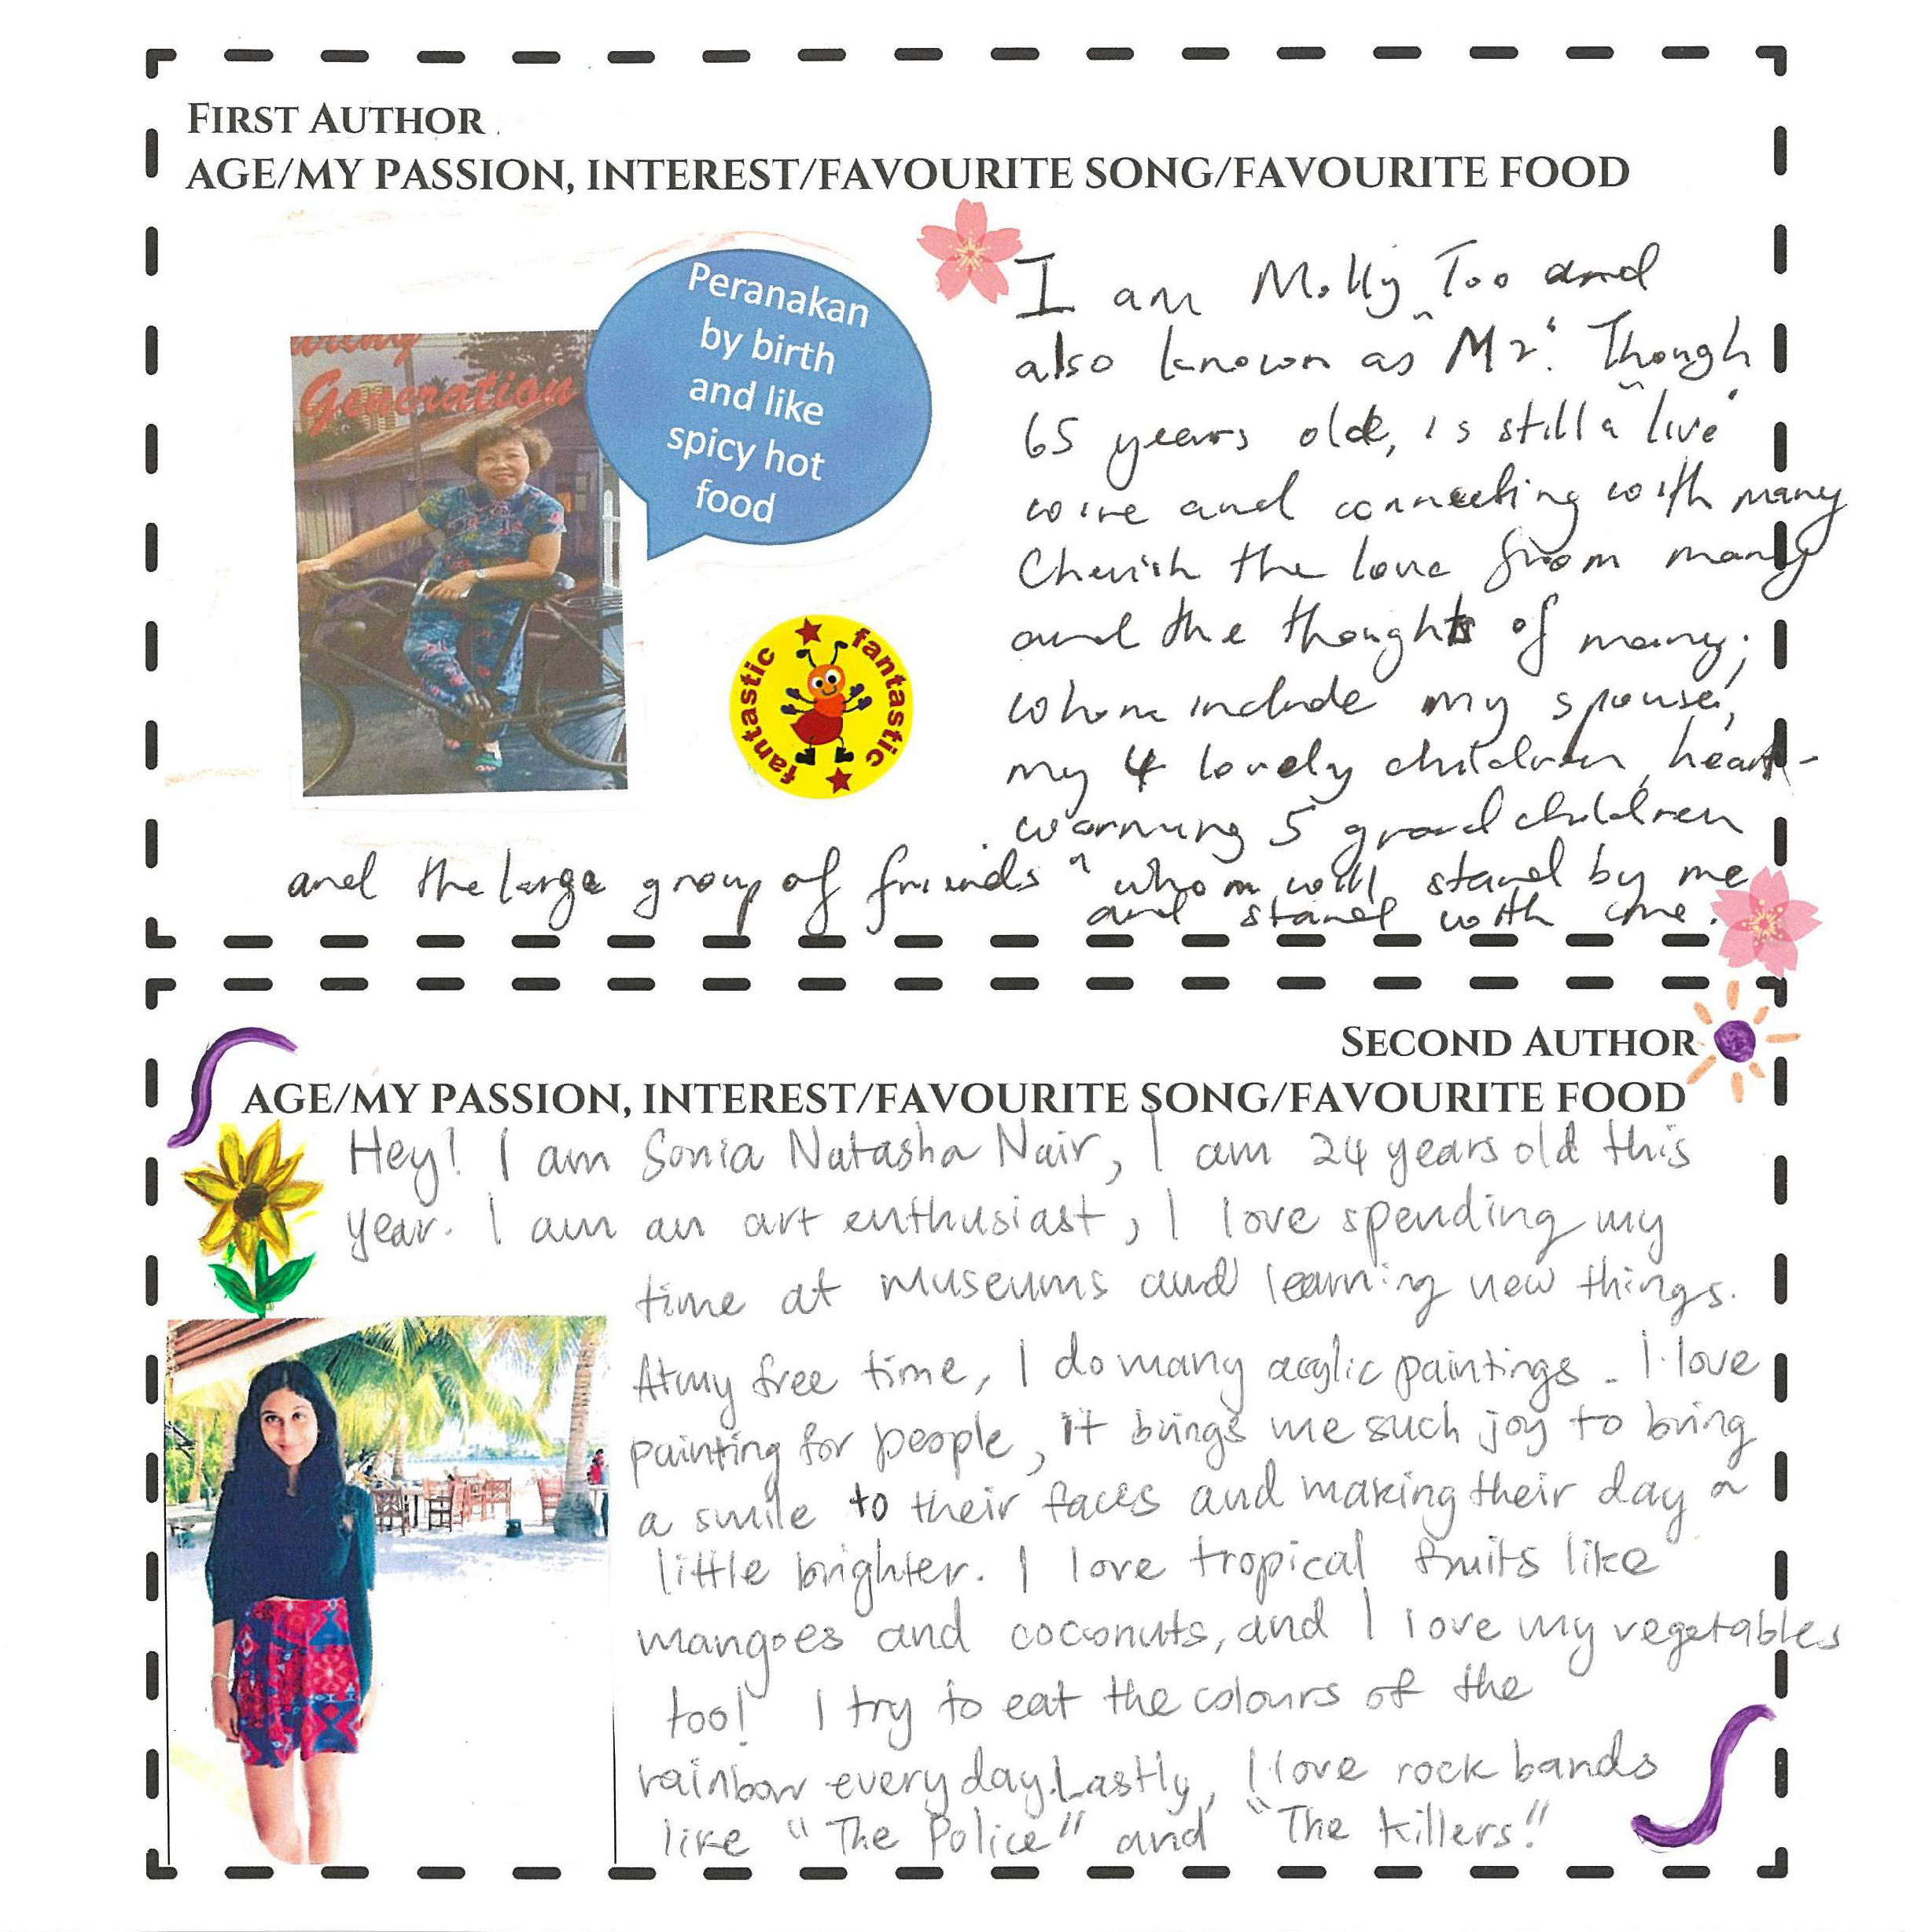 FIRST AUTHOR
AGE/MY PASSION, INTEREST/FAVOURITE SONG/FAVOURITE FOOD
Generation
Peranakan
by birth
and like
spicy hot
food
fantastic fantastic
I am Molly Too and
also known as "M2". Though
65 years old, is still a "live"
wire and connecting with many
Cherish the love from many
and the thoughts of many;
whom include my spouse,
my 4 lovely children, heart-
warming 5 grandchildren
and the large group of friends whom will stand by me
and stand with me.
SECOND AUTHOR
AGE/MY PASSION, INTEREST/FAVOURITE SONG/FAVOURITE FOOD
Hey! I am Sonia Natasha Nair, I am 24 years old this
year. I am an art enthusiast, I love spending my
time at museums and learning new things.
At my free time, I do many acrylic paintings. I love
painting for people, it brings me such joy to bring
a smile to their faces and making their day a
little brighter. I love tropical fruits like
mangoes and coconuts, and I love my vegetables
too! I try to eat the colours of the
rainbow every day. Lastly, I love rock bands
like "The Police" and "The Killers."